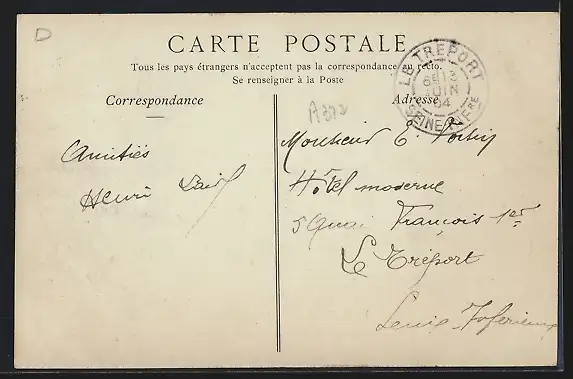 D
CARTE POSTALE
Tous les pays étrangers n'acceptent pas la correspondance au recto.
Se renseigner à la Poste
Correspondance
Adresse
A372
LE TREPORT
13
JUIN
04
SEINE INFRE
Amitiés
Henri
Monsieur E.
Hôtel moderne
5 Quai François 1er
Le Tréport
Seine Inferieure